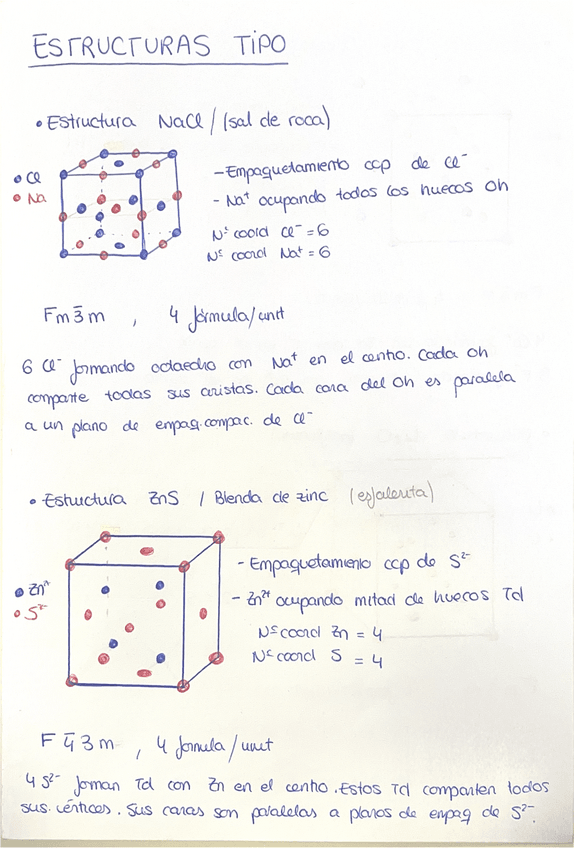 ESTRUCTURAS TIPO
• Estructura NaCl / (sal de roca)
• Cl
• Na
- Empaquetamiento ccp de Cl⁻
- Na⁺ ocupando todos los huecos Oh
Nº coord Cl⁻ = 6
Nº coord Na⁺ = 6
Fm3̄m , 4 fórmula/unit
6 Cl⁻ formando octaedro con Na⁺ en el centro. Cada Oh
comparte todas sus aristas. Cada cara del Oh es paralela
a un plano de empaq. compac. de Cl⁻
• Estructura ZnS / Blenda de zinc (esfalerita)
• Zn²⁺
• S²⁻
- Empaquetamiento ccp de S²⁻
- Zn²⁺ ocupando mitad de huecos Td
Nº coord Zn = 4
Nº coord S = 4
F4̄3m , 4 formula/unit
4 S²⁻ forman Td con Zn en el centro. Estos Td comparten todos
sus vértices. Sus caras son paralelas a planos de empaq de S²⁻.